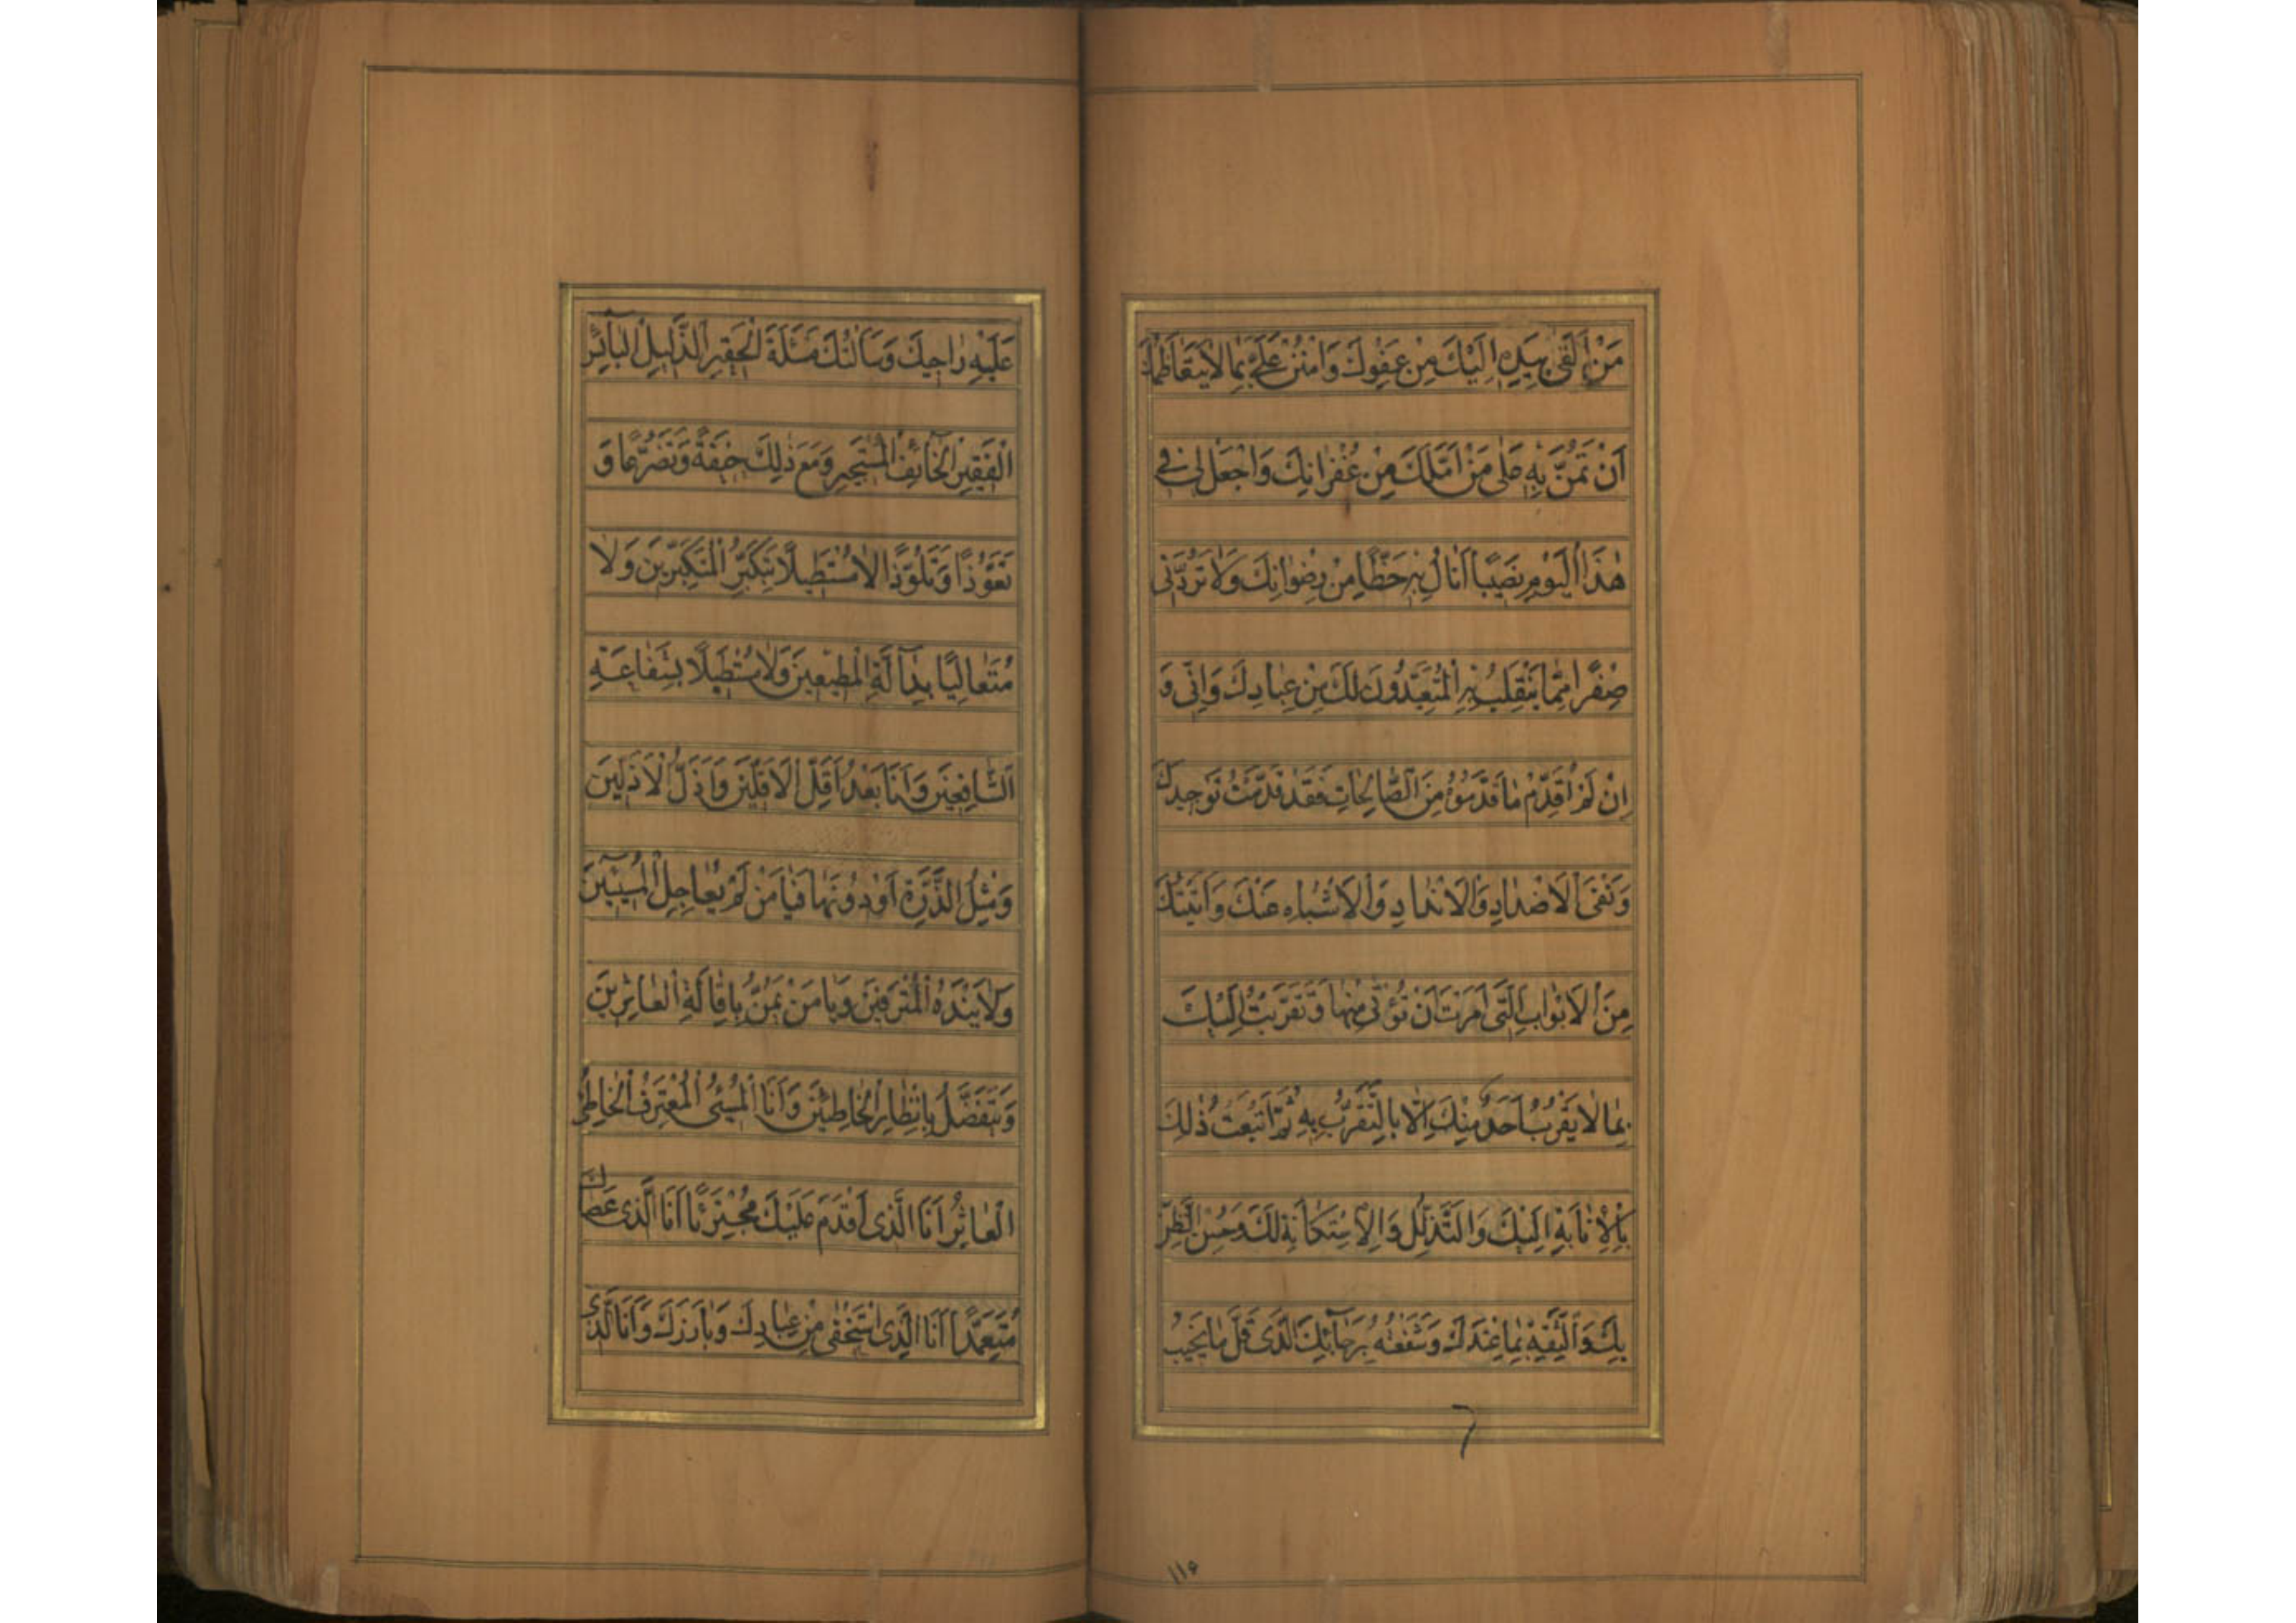 مَنْ اَلْقىٰ بِيَدِهِ اِلَيْكَ مِنْ عَفْوِكَ وَامْنُنْ عَلَىَّ بِمٰا لاٰ يَتَعٰاظَمُكَ
اَنْ تَمُنَّ بِهِ عَلىٰ مَنْ اَمَّلَكَ مِنْ غُفْرٰانِكَ وَاجْعَلْ لى فى
هٰذَا الْيَوْمِ نَصيبًا اَنٰالُ بِهِ حَظًّا مِنْ رِضْوٰانِكَ وَلاٰ تَرُدَّنى
صِفْرًا مِمّٰا يَنْقَلِبُ بِهِ الْمُتَعَبِّدُونَ لَكَ مِنْ عِبٰادِكَ وَاِنّى وَ
اِنْ لَمْ اُقَدِّمْ مٰا قَدَّمُوُهُ مِنَ الصّٰالِحٰاتِ فَقَدْ قَدَّمْتُ تَوْحيدَكَ
وَنَفْىَ الْاَضْدٰادِ وَالْاَنْدٰادِ وَالْاَشْبٰاهِ عَنْكَ وَاَتَيْتُكَ
مِنَ الْاَبْوٰابِ الَّتى اَمَرْتَ اَنْ تُؤْتىٰ مِنْهٰا وَتَقَرَّبْتُ اِلَيْكَ
بِمٰا لاٰ يَقْرُبُ اَحَدٌ مِنْكَ اِلّٰا بِالتَّقَرُّبِ بِهِ ثُمَّ اَتْبَعْتُ ذٰلِكَ
بِالْاِنٰابَةِ اِلَيْكَ وَالتَّذَلُّلِ وَالْاِسْتِكٰانَةِ لَكَ وَحُسْنِ الظَّنِّ
بِكَ وَالثِّقَةِ بِمٰا عِنْدَكَ وَشَفَعْتُهُ بِرَجٰآئِكَ الَّذى قَلَّ مٰا يَخيبُ
عَلَيْهِ رٰاجيكَ وَسَاَلْتُكَ مَسْئَلَةَ الْحَقيرِ الذَّليلِ الْبٰآئِسِ
الْفَقيرِ الْخٰآئِفِ الْمُسْتَجيرِ وَمَعَ ذٰلِكَ خيفَةً وَتَضَرُّعًا وَ
تَعَوُّذًا وَتَلَوُّذًا لاٰ مُسْتَطيلًا بِتَكَبُّرِ الْمُتَكَبِّرينَ وَلاٰ
مُتَعٰالِيًا بِدٰآلَّةِ الْمُطيعينَ وَلاٰ مُسْتَطيلًا بِشَفٰاعَةِ
الشّٰافِعينَ وَاَنَا بَعْدُ اَقَلُّ الْاَقَلّينَ وَاَذَلُّ الْاَذَلّينَ
وَمِثْلُ الذَّرَّةِ اَوْ دُونَهٰا فَيٰا مَنْ لَمْ يُعٰاجِلِ الْمُسيئينَ
وَلاٰ يَنْدَهُ الْمُتْرَفينَ وَيٰا مَنْ يَمُنُّ بِاِقٰالَةِ الْعٰاثِرينَ
وَيَتَفَضَّلُ بِاِنْظٰارِ الْخٰاطِئينَ وَاَنَا الْمُسيئُ الْمُعْتَرِفُ الْخٰاطِئُ
الْعٰاثِرُ اَنَا الَّذى اَقْدَمَ عَلَيْكَ مُجْتَرِئًا اَنَا الَّذى عَصٰاكَ
مُتَعَمِّدًا اَنَا الَّذى اسْتَخْفىٰ مِنْ عِبٰادِكَ وَبٰارَزَكَ وَاَنَا الَّذى